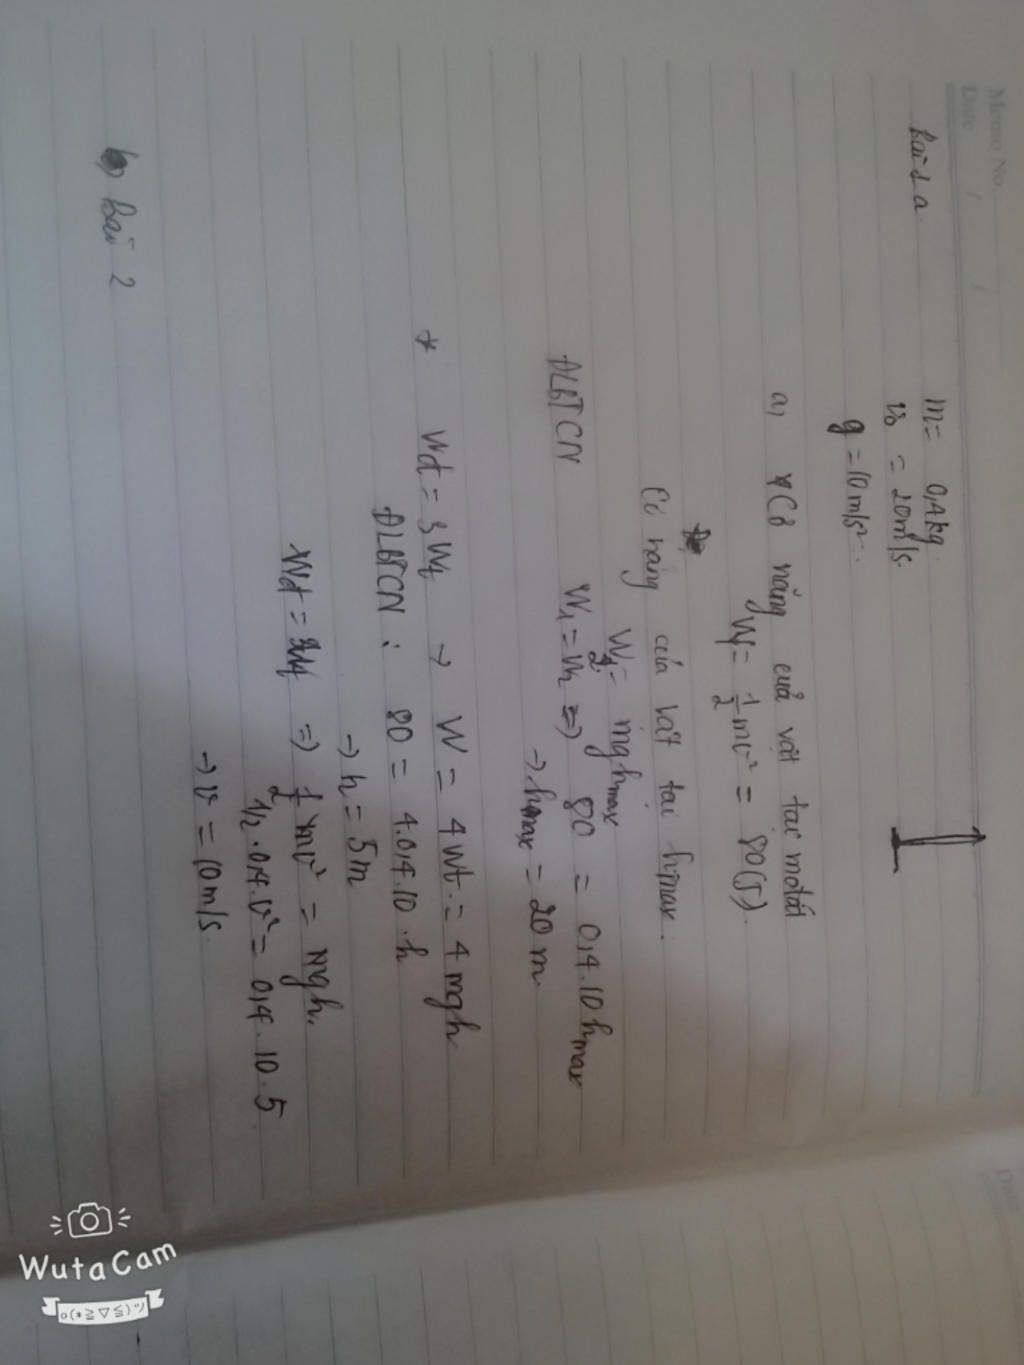 Memo No.
Date / /
Bài 1a
m = 0,4kg.
v0 = 20m/s.
g = 10m/s².
a, Cơ năng của vật tại mđất
W1 = 1/2 mv² = 80(J).
Cơ năng của vật tại hmax:
W2 = mghmax
ĐLBTCN W1 = W2 => 80 = 0,4.10hmax
→ hmax = 20m
* Wđ = 3Wt → W = 4Wt = 4mgh
ĐLBTCN: 80 = 4.0,4.10.h
→ h = 5m
Wđ = => 1/2 mv² = mgh.
1/2.0,4.v² = 0,4.10.5
→ v = 10m/s.
b, Bài 2
Date
WutaCam